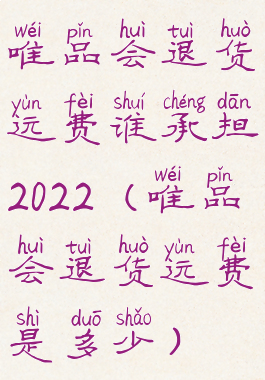 wéi pǐn huì tuì huò
唯品会退货
yùn fèi shuí chéng dān
运费谁承担
wéi pǐn
2022（唯品
huì tuì huò yùn fèi
会退货运费
shì duō shǎo
是多少）